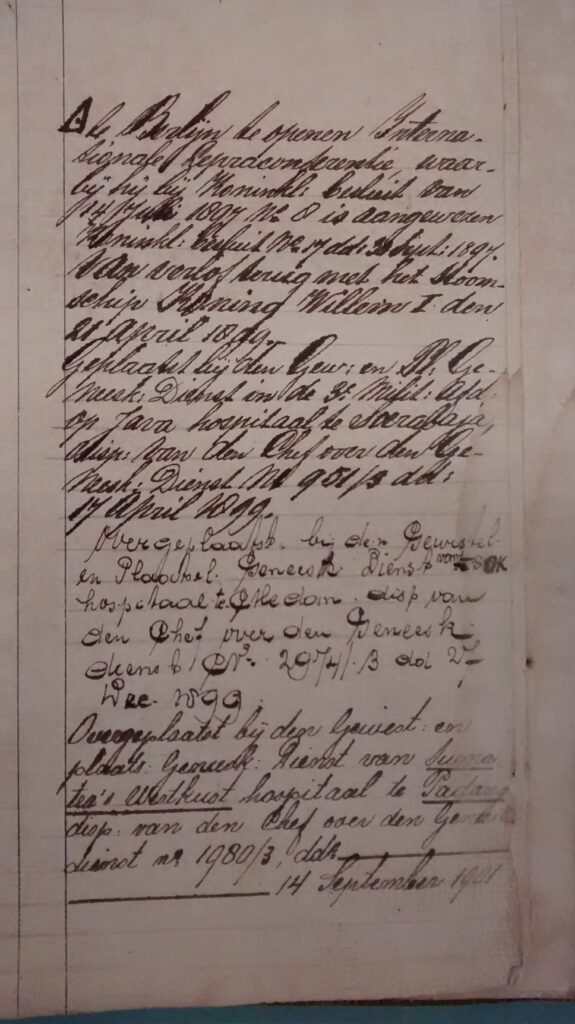 te Berlijn te openen Interna-
tionale Lepraconferentie, waar-
bij hij bij Koninkl: besluit van
14 Juli 1897 No 8 is aangewezen
Koninkl: besluit No 17 dd: Sept: 1897.
Van verlof terug met het stoom-
schip Koning Willem I den
21 April 1899.
Geplaatst bij den Gew: en Pl: Ge-
neesk: Dienst in de 3e Milit: Afd:
op Java hospitaal te Soerabaja,
disp: van den Chef over den Ge-
neesk: Dienst No 951/3 dd:
17 April 1899.
Overgeplaatst bij den Gewestel
en Plaatsel Geneesk Dienst van SOK
hospitaal te Medan disp van
den Chef over den Geneesk
dienst No 29741/3 dd 27
Dec. 1899
Overgeplaatst bij den Gewest: en
plaats: Geneesk: Dienst van Suma-
tra's Westkust hospitaal te Padang
disp: van den Chef over den Geneesk
dienst no 1980/3, ddo
14 September 1901